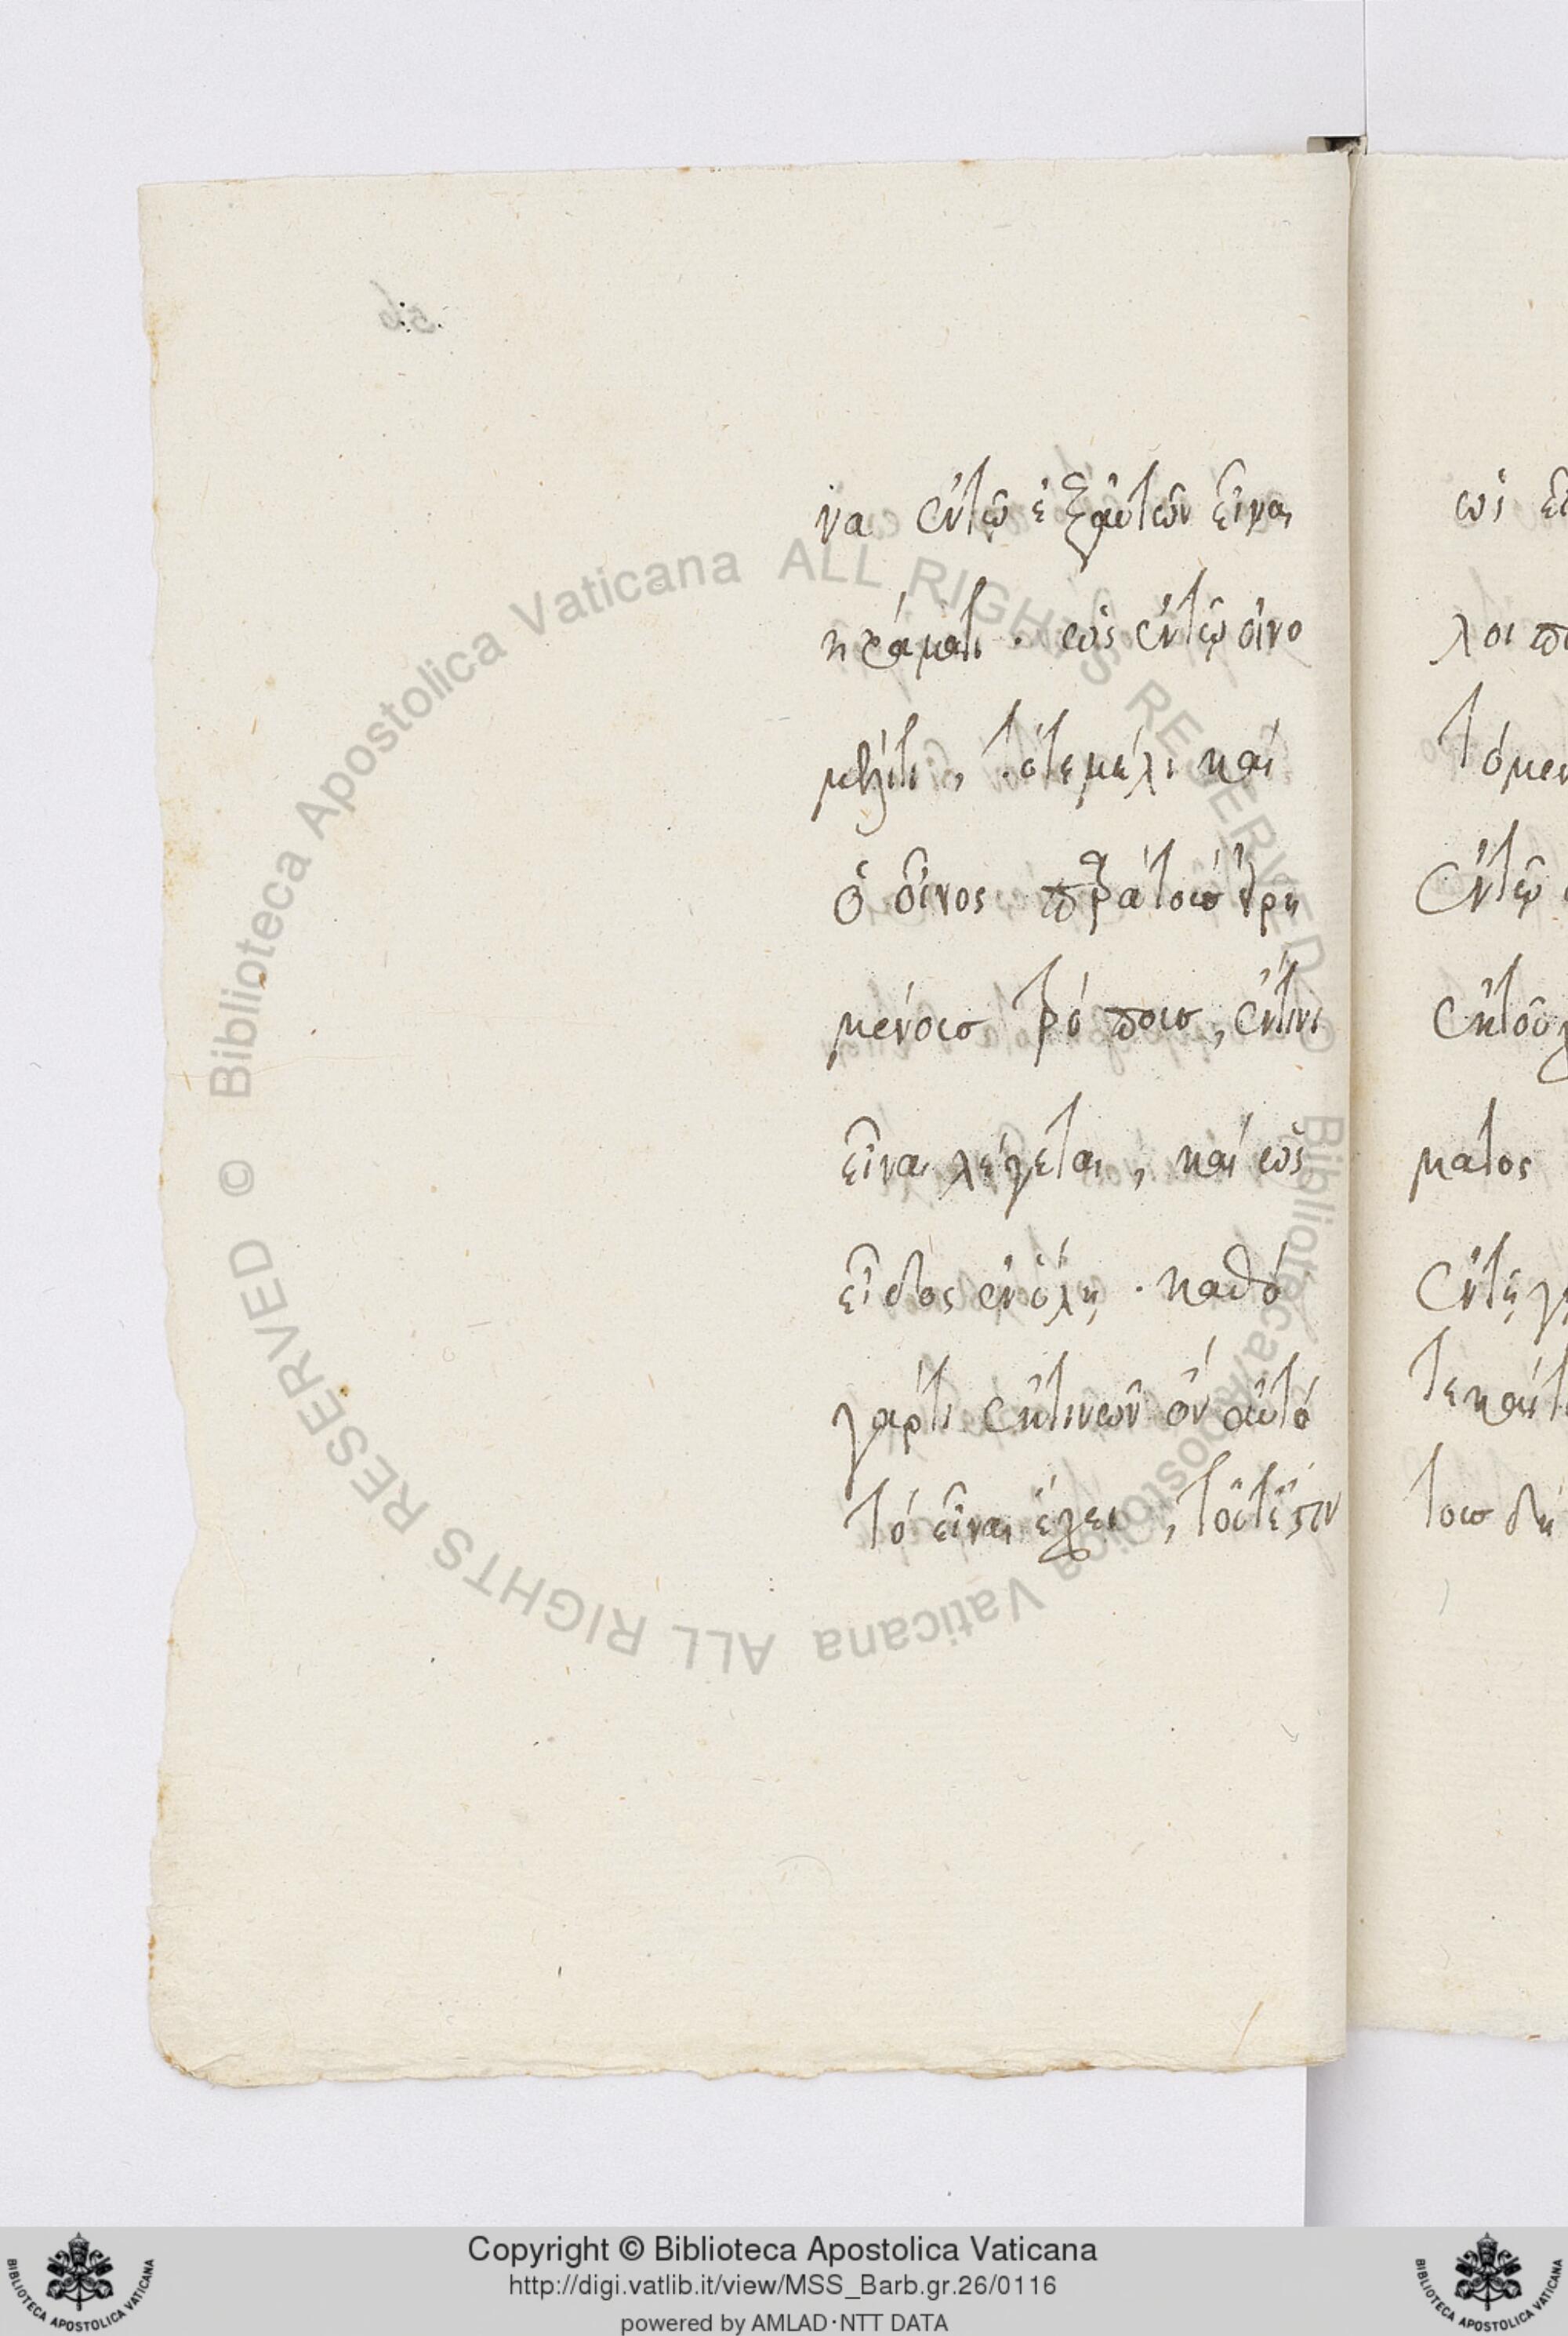 να ἐν τῶ ἐξ αὐτῶν εἶναι
κράματι . ὡς ἐν τῶ οἰνο
μέλιτι , τό τε μέλι καὶ
ὁ οἶνος παρὰ τοῖς εἰρη
μένοις τρόποις , ἔν τινι
εἶναι λέγεται , καὶ ὡς
εἶδος ἐν ὕλη . καθό
γάρ τι ἐκ τινῶν ὂν αὐτό
τό εἶναι ἔχει , τοῦτ ἔστιν
ὡς
λοι
τό μεν
ἐν τῶ
ἐκ τοῦ
ματος
ἐν τῆ
τε καὶ
τοις δη
© Biblioteca Apostolica Vaticana ALL RIGHTS RESERVED
© Biblioteca Apostolica Vaticana ALL RIGHTS RESERVED
Copyright © Biblioteca Apostolica Vaticana
http://digi.vatlib.it/view/MSS_Barb.gr.26/0116
powered by AMLAD·NTT DATA
BIBLIOTECA APOSTOLICA VATICANA
BIBLIOTECA APOSTOLICA VATICANA